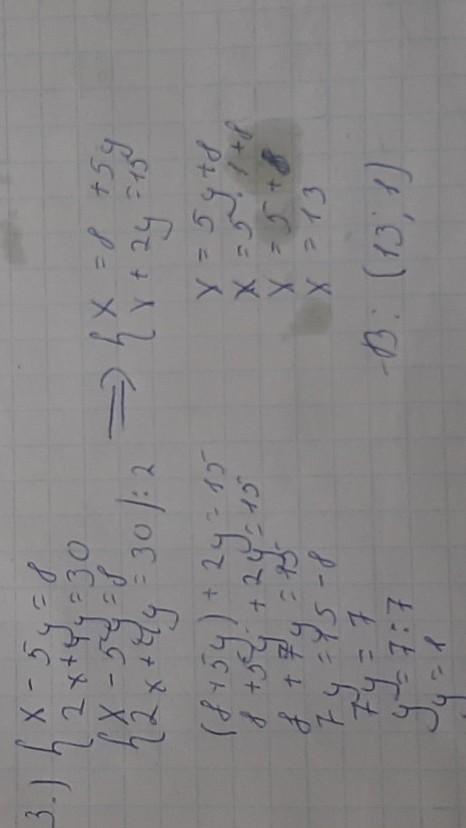 3.) { x - 5y = 8
2x + 4y = 30
{ x - 5y = 8
2x + 4y = 30 | : 2
⟹ { x = 8 + 5y
x + 2y = 15
(8 + 5y) + 2y = 15
8 + 5y + 2y = 15
8 + 7y = 15
7y = 15 - 8
7y = 7
y = 7 : 7
y = 1
x = 5y + 8
x = 5 · 1 + 8
x = 5 + 8
x = 13
В: (13; 1)